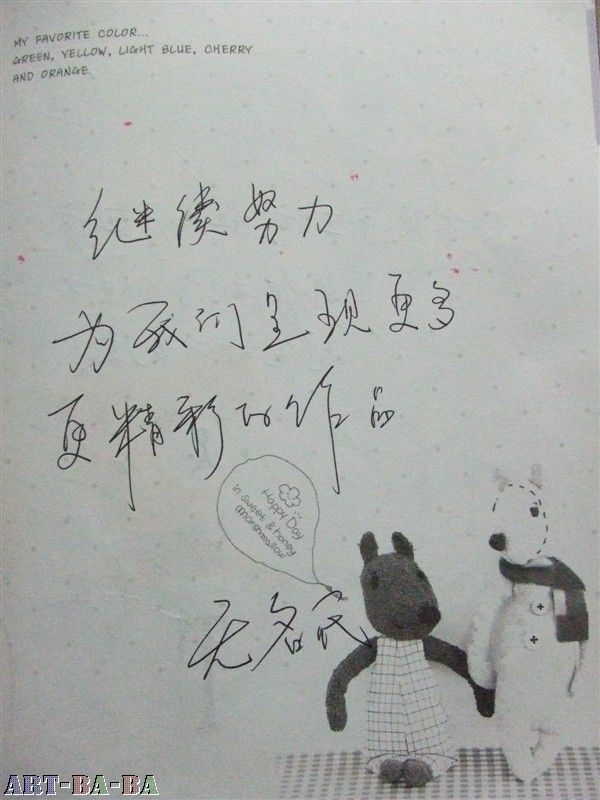 MY FAVORITE COLOR...
GREEN, YELLOW, LIGHT BLUE, CHERRY
AND ORANGE.
继续努力
为我们呈现更多
更精彩的作品
Happy Day
in sweet & honey
marshmallow
无名氏
ART-BA-BA